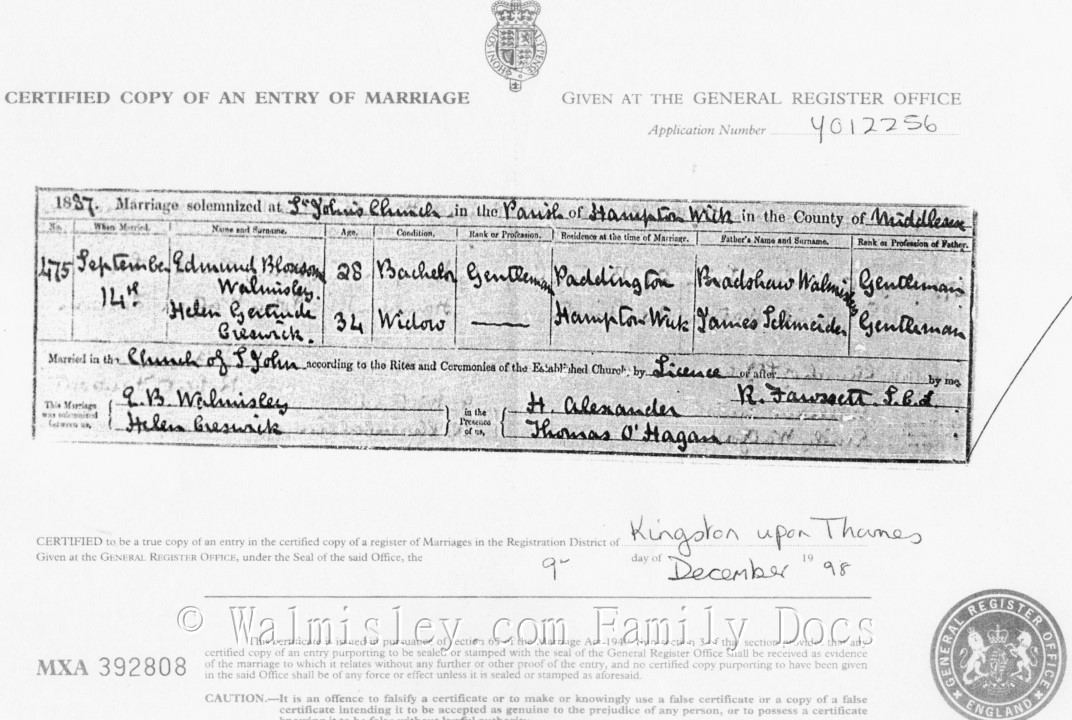 HONI SOIT
MAL Y PENSE
CERTIFIED COPY OF AN ENTRY OF MARRIAGE
GIVEN AT THE GENERAL REGISTER OFFICE
Application Number Y012256
1887. Marriage solemnized at St John's Church in the Parish of Hampton Wick in the County of Middlesex
No. When Married. Name and Surname. Age. Condition. Rank or Profession. Residence at the time of Marriage. Father's Name and Surname. Rank or Profession of Father.
475 September Edmund Bloxsom 28 Bachelor Gentleman Paddington Bradshaw Walmisley Gentleman
14th Walmisley.
Helen Gertrude 34 Widow — Hampton Wick James Schneider Gentleman
Creswick.
Married in the Church of S John according to the Rites and Ceremonies of the Established Church, by Licence or after by me,
R. Fawssett
This Marriage was solemnized between us, E. B. Walmisley in the Presence of us, H. Alexander
Helen Creswick Thomas O'Hagan
CERTIFIED to be a true copy of an entry in the certified copy of a register of Marriages in the Registration District of Kingston upon Thames
Given at the GENERAL REGISTER OFFICE, under the Seal of the said Office, the 9th day of December 1998
© Walmisley.com Family Docs
This certificate is issued in pursuance of section 65 of the Marriage Act 1949. Sub-section 3 of that section provides that any
certified copy of an entry purporting to be sealed or stamped with the seal of the General Register Office shall be received as evidence
of the marriage to which it relates without any further or other proof of the entry, and no certified copy purporting to have been given
in the said Office shall be of any force or effect unless it is sealed or stamped as aforesaid.
MXA 392808
CAUTION.—It is an offence to falsify a certificate or to make or knowingly use a false certificate or a copy of a false
certificate intending it to be accepted as genuine to the prejudice of any person, or to possess a certificate
knowing it to be false without lawful authority.
GENERAL REGISTER OFFICE
ENGLAND